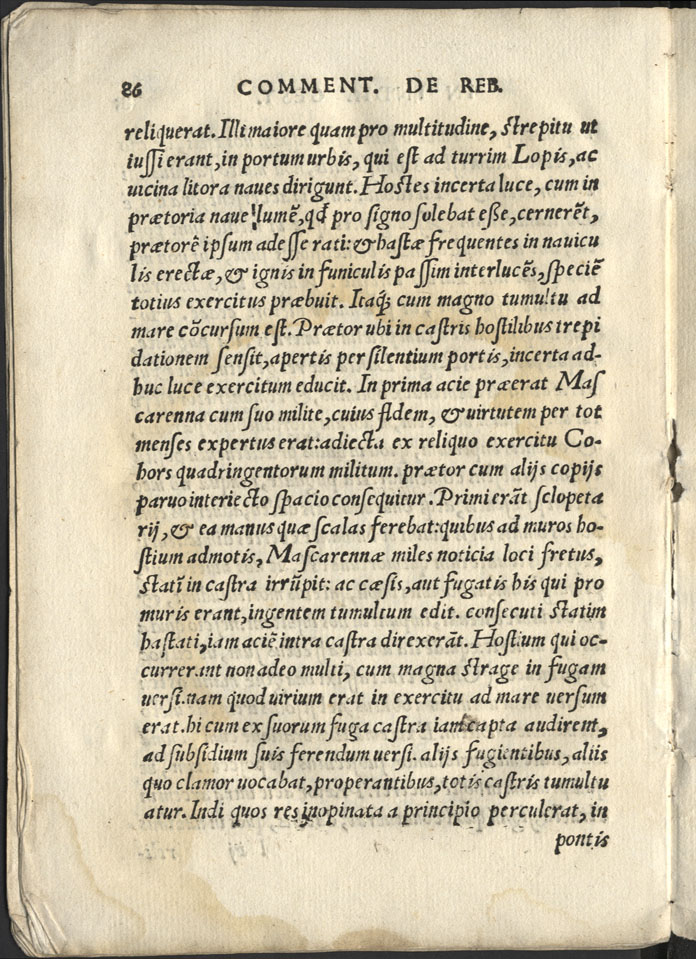 86 COMMENT. DE REB.
reliquerat. Illi maiore quam pro multitudine, strepitu ut
iussi erant, in portum urbis, qui est ad turrim Lopis, ac
uicina litora naues dirigunt. Hostes incerta luce, cum in
prætoria naue lumē, qđ pro signo solebat esse, cernerēt,
prætorē ipsum adesse rati: & hastæ frequentes in nauicu
lis erectæ, & ignis in funiculis passim interlucēs, speciē
totius exercitus præbuit. Itaq; cum magno tumultu ad
mare cōcursum est. Prætor ubi in castris hostilibus trepi
dationem sensit, apertis per silentium portis, incerta ad-
huc luce exercitum educit. In prima acie præerat Mas
carenna cum suo milite, cuius fidem, & uirtutem per tot
menses expertus erat: adiecta ex reliquo exercitu Co-
hors quadringentorum militum. prætor cum alijs copijs
paruo interiecto spacio consequitur. Primi erāt sclopeta
rij, & ea manus quæ scalas ferebat: quibus ad muros ho-
stium admotis, Mascarennæ miles noticia loci fretus,
statī in castra irrūpit: ac cæsis, aut fugatis his qui pro
muris erant, ingentem tumultum edit. consecuti statim
hastati, iam aciē intra castra direxerāt. Hostium qui oc-
currerant non adeo multi, cum magna strage in fugam
uersi. nam quod uirium erat in exercitu ad mare uersum
erat. hi cum ex suorum fuga castra iam capta audirent,
ad subsidium suis ferendum uersi. alijs fugientibus, aliis
quo clamor uocabat, properantibus, totis castris tumultu
atur. Indi quos res inopinata a principio perculerat, in
pontis